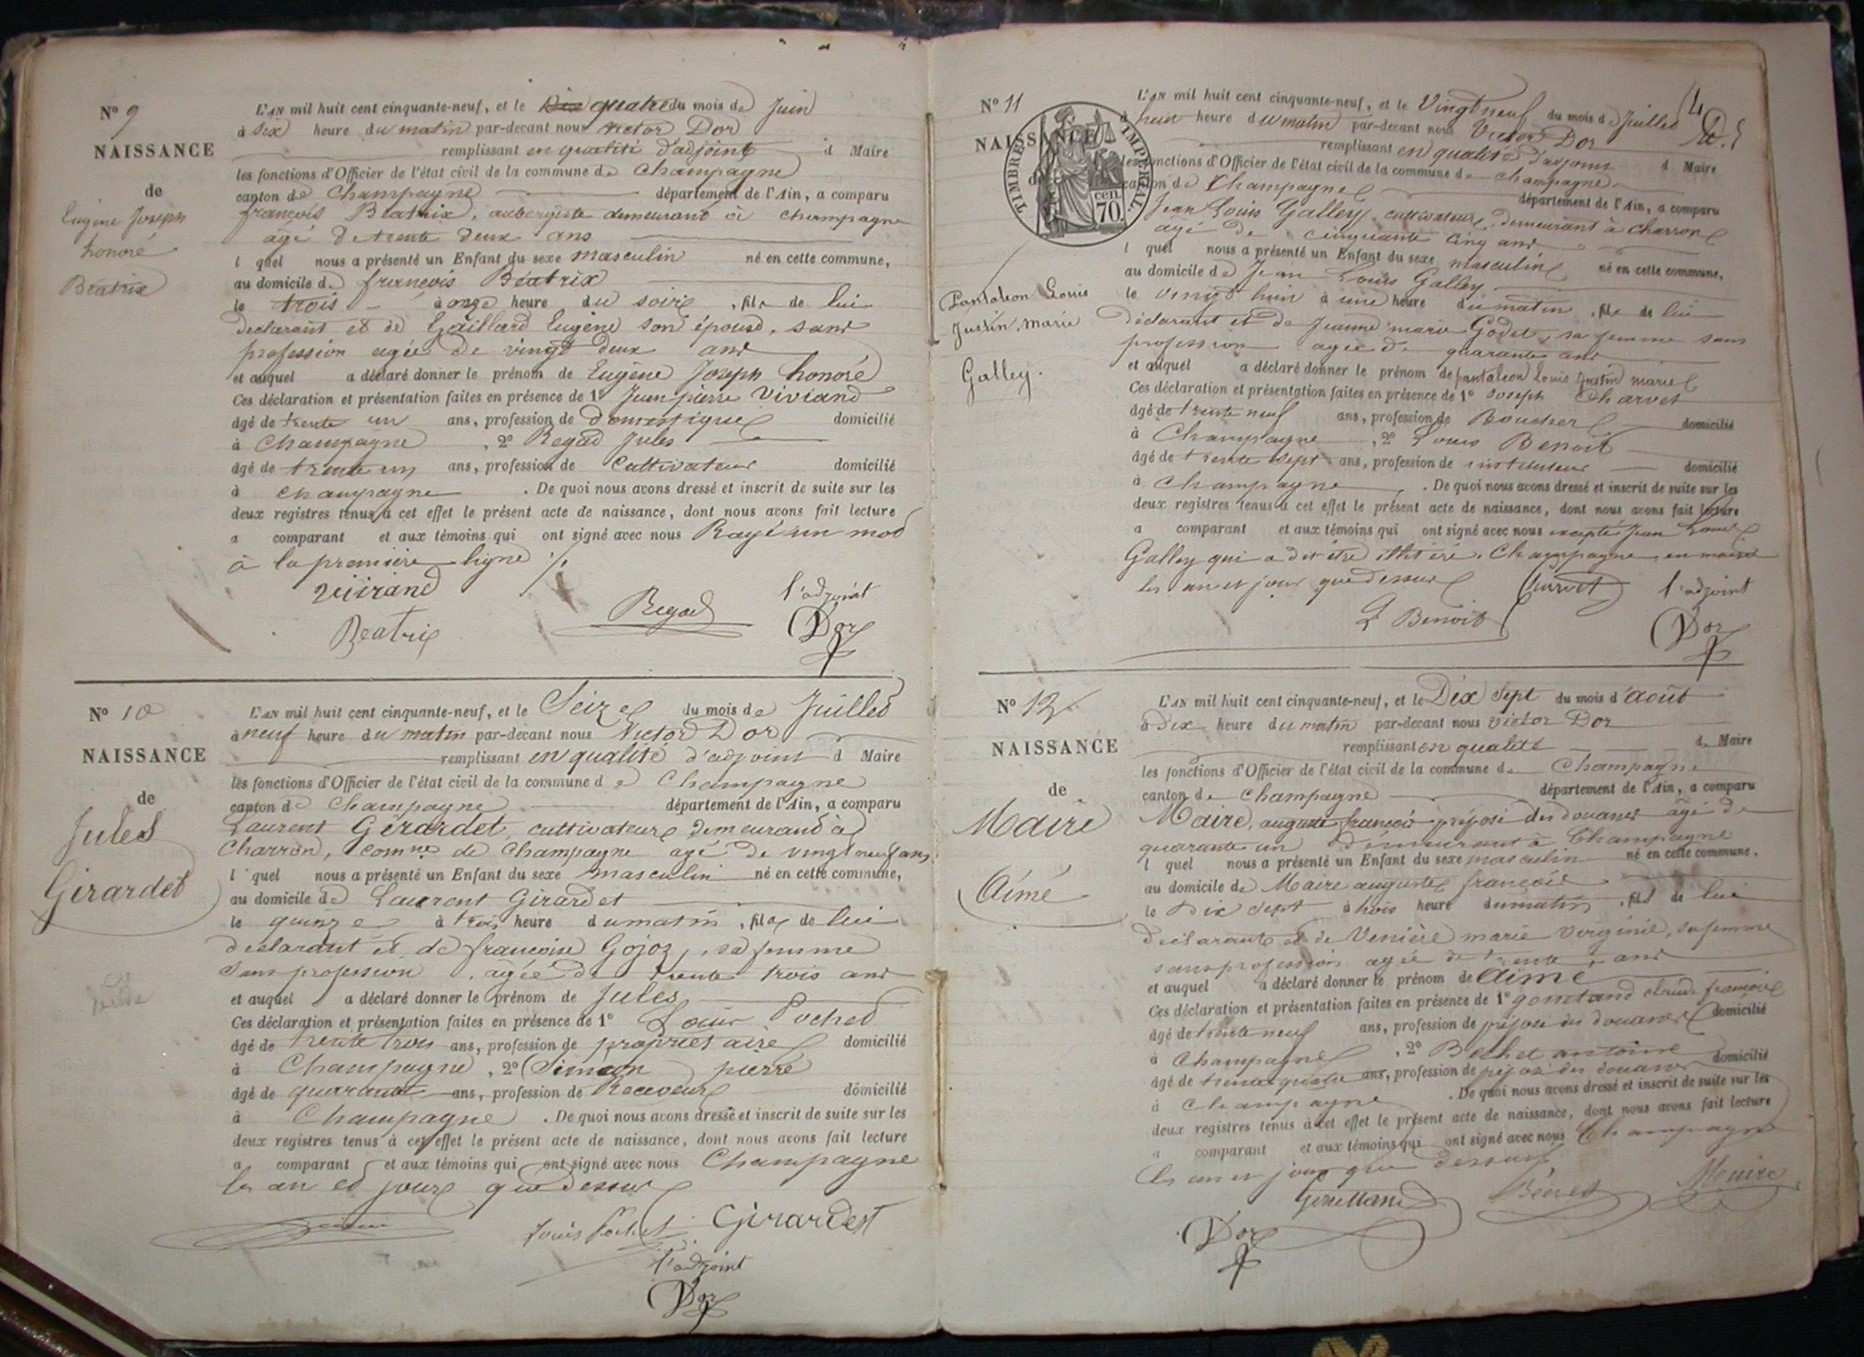 N° 9
NAISSANCE
de
Eugène Joseph
honoré
Béatrix
L'AN mil huit cent cinquante-neuf, et le quatre du mois de Juin
à six heure du matin par-devant nous Victor Dor
remplissant en qualité d'adjoint d Maire
les fonctions d'Officier de l'état civil de la commune de Champagne
canton de Champagne département de l'Ain, a comparu
françois Béatrix, aubergiste demeurant à champagne
agé de trente deux ans
l quel nous a présenté un Enfant du sexe masculin né en cette commune,
au domicile de françois Béatrix
le trois à onze heure du soir, fils de lui
déclarant et de Gaillard Eugène son épouse, sans
profession agée de vingt deux ans
et auquel a déclaré donner le prénom de Eugène Joseph honoré
Ces déclaration et présentation faites en présence de 1° Jean pierre Viviand
âgé de trente un ans, profession de Domestique domicilié
à Champagne, 2° Regad Jules
âgé de trente un ans, profession de Cultivateur domicilié
à champagne. De quoi nous avons dressé et inscrit de suite sur les
deux registres tenus à cet effet le présent acte de naissance, dont nous avons fait lecture
a comparant et aux témoins qui ont signé avec nous Rayé un mot
à la première ligne
Béatrix
Regad
l'adjoint
Dor
N° 10
NAISSANCE
de
Jules
Girardet
L'AN mil huit cent cinquante-neuf, et le Seize du mois de Juillet
à neuf heure du matin par-devant nous Victor Dor
remplissant en qualité d'adjoint d Maire
les fonctions d'Officier de l'état civil de la commune de Champagne
canton de Champagne département de l'Ain, a comparu
Laurent Gérardet, cultivateur demeurant à
Charron, comne de Champagne agé de vingt neuf ans
l quel nous a présenté un Enfant du sexe masculin né en cette commune,
au domicile de Laurent Girardet
le quinze à trois heure du matin, fils de lui
déclarant et de françoise Gojoz, sa femme
sans profession, agée de trente trois ans
et auquel a déclaré donner le prénom de Jules
Ces déclaration et présentation faites en présence de 1° Louis Pochet
âgé de trente trois ans, profession de propriétaire domicilié
à Champagne, 2° Simon pierre
âgé de quarante ans, profession de Receveur domicilié
à Champagne. De quoi nous avons dressé et inscrit de suite sur les
deux registres tenus à cet effet le présent acte de naissance, dont nous avons fait lecture
a comparant et aux témoins qui ont signé avec nous Champagne
les an et jour que dessus
Louis Pochet Girardet
l'adjoint
Dor
N° 11
NAISSANCE
de
TIMBRE IMPERIAL
70 cen.
Pantaléon Louis
Justin Marie
Galley.
L'AN mil huit cent cinquante-neuf, et le Vingt neuf du mois de Juillet
à huit heure du matin par-devant nous Victor Dor
remplissant en qualité d'adjoint d Maire
les fonctions d'Officier de l'état civil de la commune de champagne
canton de Champagne département de l'Ain, a comparu
Jean Louis Galley, cultivateur, demeurant à charron
agé de cinquante cinq ans
l quel nous a présenté un Enfant du sexe masculin né en cette commune,
au domicile de Jean Louis Galley
le vingt huit à une heure du matin, fils de lui
déclarant et de Jeanne marie Godet, sa femme sans
profession agée de quarante ans
et auquel a déclaré donner le prénom de pantaléon Louis Justin marie
Ces déclaration et présentation faites en présence de 1° Joseph Charvet
âgé de trente neuf ans, profession de Boucher domicilié
à Champagne, 2° Louis Benoit
âgé de trente sept ans, profession de instituteur domicilié
à Champagne. De quoi nous avons dressé et inscrit de suite sur les
deux registres tenus à cet effet le présent acte de naissance, dont nous avons fait lecture
a comparant et aux témoins qui ont signé avec nous excepté Jean Louis
Galley qui a dit être illitéré. Champagne en mairie
les an et jour que dessus Charvet l'adjoint
L Benoit
Dor
N° 12
NAISSANCE
de
Maire
Aimé
L'AN mil huit cent cinquante-neuf, et le Dix Sept du mois d'août
à Dix heure du matin par-devant nous Victor Dor
remplissant en qualité d. Maire
les fonctions d'Officier de l'état civil de la commune de Champagne
canton de Champagne département de l'Ain, a comparu
Maire, auguste françois préposé des douanes agé de
quarante un demeurant à Champagne
l quel nous a présenté un Enfant du sexe masculin né en cette commune,
au domicile de Maire auguste françois
le Dix sept à trois heure du matin, fils de lui
déclarant et de Venière marie virginie, sa femme
sans profession agée de trente ans
et auquel a déclaré donner le prénom de Aimé
Ces déclaration et présentation faites en présence de 1° claude françois
âgé de trente neuf ans, profession de préposé des douanes domicilié
à Champagne, 2° antoine
âgé de trente quatre ans, profession de préposé des douanes domicilié
à champagne. De quoi nous avons dressé et inscrit de suite sur les
deux registres tenus à cet effet le présent acte de naissance, dont nous avons fait lecture
a comparant et aux témoins qui ont signé avec nous Champagne
les an et jour que dessus
Maire
Dor